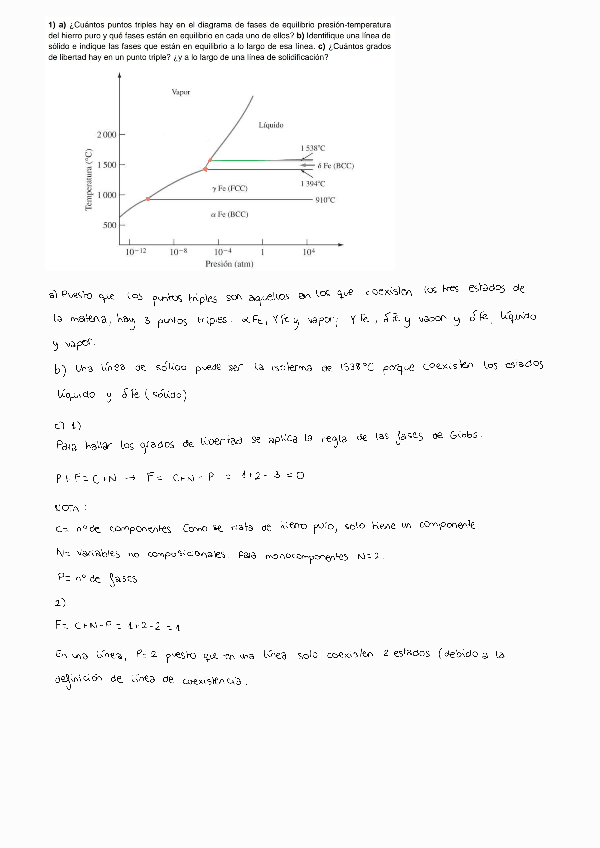 1) a) ¿Cuántos puntos triples hay en el diagrama de fases de equilibrio presión-temperatura
del hierro puro y qué fases están en equilibrio en cada uno de ellos? b) Identifique una línea de
sólido e indique las fases que están en equilibrio a lo largo de esa línea. c) ¿Cuántos grados
de libertad hay en un punto triple? ¿y a lo largo de una línea de solidificación?
Vapor
Líquido
2 000
1 538°C
δ Fe (BCC)
1 500
1 394°C
γ Fe (FCC)
1 000
910°C
α Fe (BCC)
500
Temperatura (°C)
10⁻¹² 10⁻⁸ 10⁻⁴ 1 10⁴
Presión (atm)
a) Puesto que los puntos triples son aquellos en los que coexisten los tres estados de
la materia, hay 3 puntos triples: αFe, γFe y vapor; γFe, δFe y vapor y δFe, líquido
y vapor.
b) Una línea de sólido puede ser la isoterma de 1538°C porque coexisten los estados
líquido y δFe (sólido)
c) 1)
Para hallar los grados de libertad se aplica la regla de las fases de Gibbs.
P+F=C+N → F= C+N-P = 1+2-3=0
NOTA:
C= nº de componentes. Como se trata de hierro puro, solo tiene un componente
N= variables no composicionales. Para monocomponentes N=2.
P= nº de fases
2)
F= C+N-P = 1+2-2=1
En una línea, P=2 puesto que en una línea solo coexisten 2 estados (debido a la
definición de línea de coexistencia.